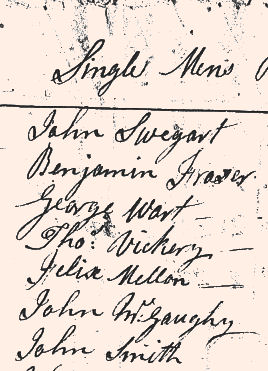 Single Mens
John Swegart
Benjamin Frazer
George Wart
Tho: Vickery
Felix Mellon
John McGaughy
John Smith